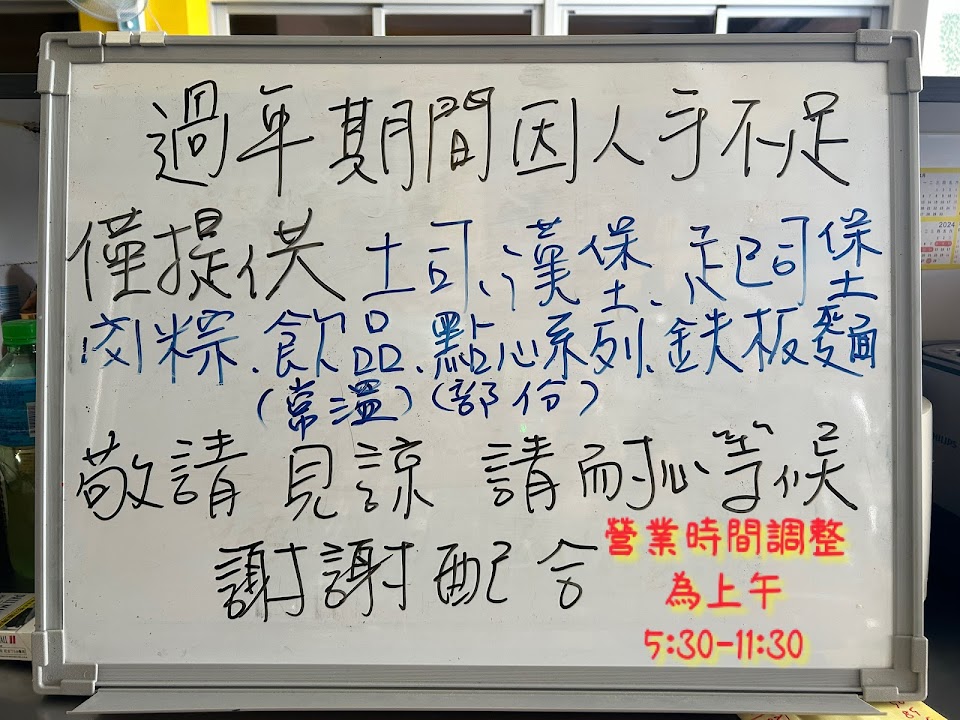 過年期間因人手不足
僅提供 土司、漢堡、起司堡
肉粽、飲品、點心系列、鉄板麵
(常溫)(部份)
敬請見諒 請耐心等候
謝謝配合
營業時間調整
為上午
5:30-11:30
2024
PHILIPS